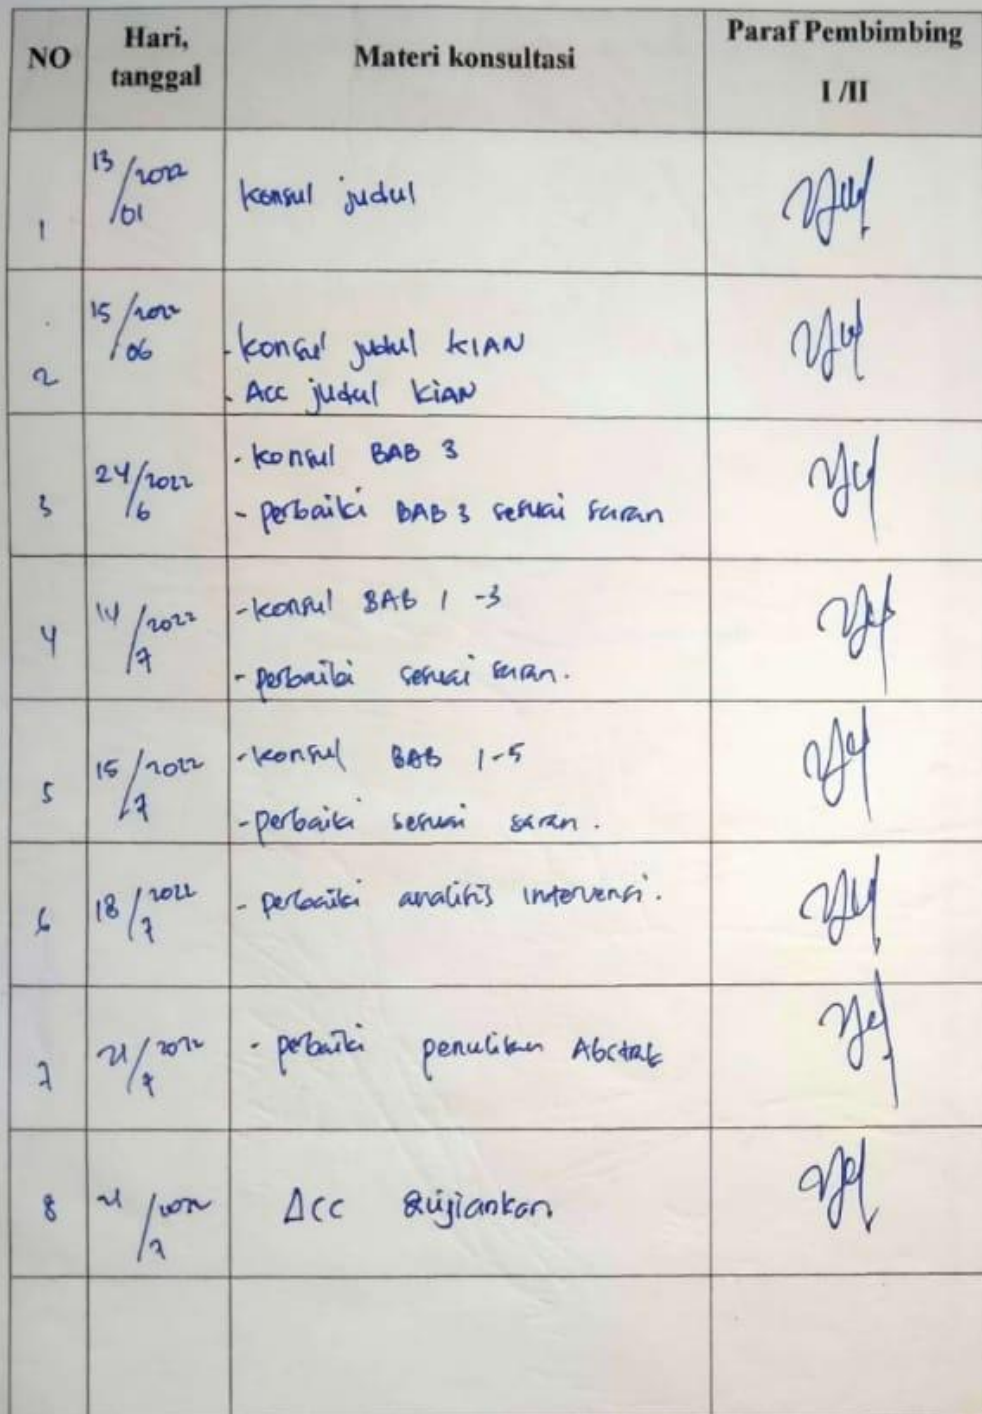 NO Hari, tanggal Materi konsultasi Paraf Pembimbing I /II
1 13/2022 01 konsul judul
2 15/2022 06 - konsul judul KIAN
- Acc judul KIAN
3 24/2022 6 - konsul BAB 3
- perbaiki BAB 3 sesuai saran
4 14/2022 7 - konsul BAB 1 -3
- perbaiki sesuai saran.
5 15/2022 7 - konsul BAB 1-5
- perbaiki sesuai saran.
6 18/2022 7 - perbaiki analisis intervensi.
7 21/2022 7 - perbaiki penulisan Abstrak
8 21/2022 7 ACC diujiankan